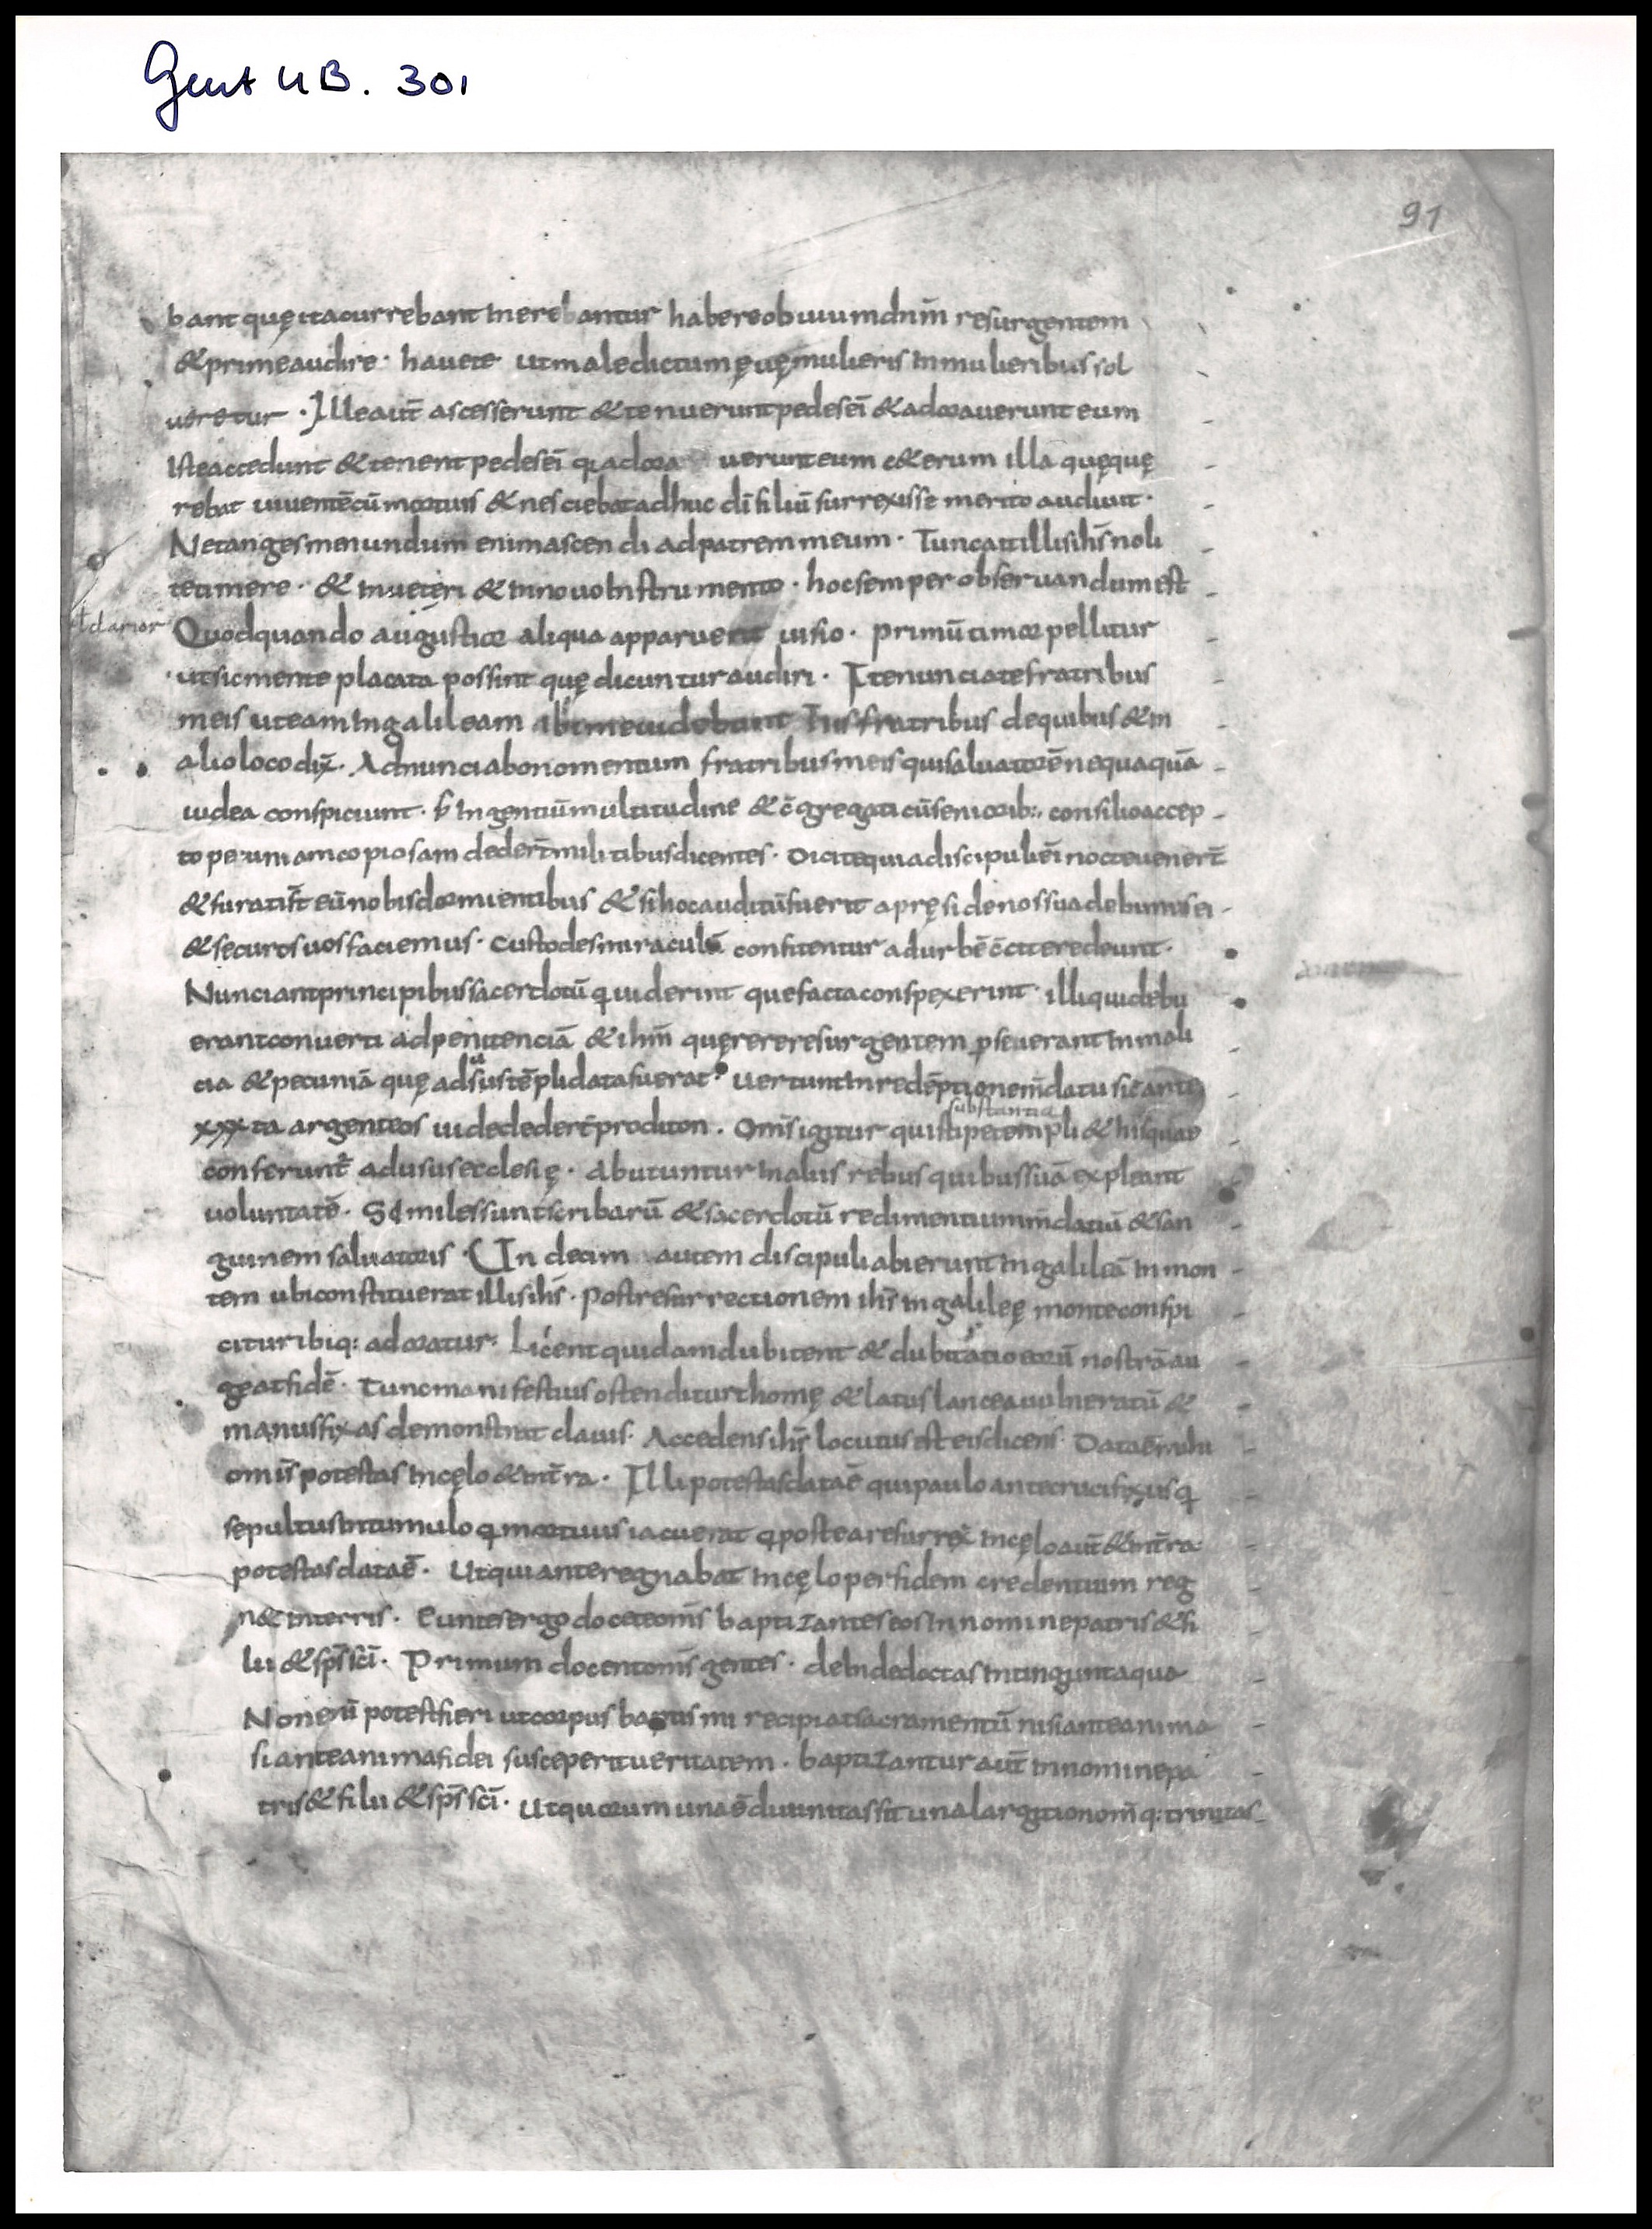 Gent UB. 301
91
bant quę ita currebant merebantur habere obuium dn̄m resurgentem
& prime audire· hauete ut maledictum ęuę mulieris in mulieribus sol
ueretur · Ille aut̄ ascesserunt & tenuerunt pedes ei & adorauerunt eum
Iste accedunt & tenent pedes ei q adora uerunt eum c&erum illa quę quę
rebat uiuentē cū mortuis & nesciebat adhuc dī filiū surrexisse merito audiuit·
Ne tanges me nundum enim ascendi ad patrem meum · Tunc ait illis ihs̄ noli
te timere· & in ueteri & in nouo Instrumento · hoc semper obseruandum est
Quod quando augustior aliqua apparuerit uisio· primū timor pellitur
ut sic mente placata possint quę dicuntur audiri· Ite nunciate fratribus
meis ut eam In galileam ibi me uidebunt his fratribus de quibus & in
alio loco dix̄· Adnunciabo nomen tuum fratribus meis qui saluatorē nequaquā
iudea conspiciunt· In gentiū multitudine & c̄gregati cū seniorib:, consilio accep
to pecuniam copiosam dedert̄ militibus dicentes· Dicite quia discipuli ei nocte uenert̄
& furati st̄ eū nobis dormientibus & si hoc auditū fuerit a pręside nos suadebimus ei
& securos uos faciemus· Custodes miraculū confitentur ad urbē c̄cite redeunt·
Nunciant principibus sacerdotū q uiderint que facta conspexerint· illi qui debu
erant conuerti ad penitenciā & ihm̄ quęrere resurgentem pseuerant In mali
cia & pecuniā quę ad usus tēpli data fuerat· uertunt In redēptionem m̄datii sic̄ ante
xxx ta argenteos iude dedert̄ proditori . Omīs igitur qui stipe templi & his quae
substantia
conferunt̄ ad usus ecclesię· Abutuntur In aliis rebus quibus suā expleant
uoluntatē· Similes sunt scribarū & sacerdotū redimentium m̄datiū & san
guinem saluatoris · Undecim autem discipuli abierunt In galileā In mon
tem ubi constituerat illis ihs̄ · Post resurrectionem ihs̄ In galileę monte conspi
citur ibiq: adoratur· Licent quidam dubitent & dubitatio eorū nostrā au
geat fidē· Tunc manifestius ostenditur thomę & latus lancea uulneratū &
manus fixas demonstrat clauis· Accedens ihs̄ locutus est eis dicens· Data ē mihi
omīs potestas In cęlo & In t̄ra · Illi potestas data ē qui paulo ante crucifixus q
sepultus In tumulo q mortuus iacuerat q postea resurrex̄ In cęlo aut̄ & In t̄ra
potestas data ē· Ut qui ante regnabat In cęlo per fidem credentium reg
n& In terris· Euntes ergo docete omīs baptizantes eos In nomine patris & fi
lii & sp̄s sc̄i· Primum docent omīs gentes· deInde doctas Intingunt aqua
Non enī potest fieri ut corpus baptismi recipiat sacramentū nisi ante anima
si ante anima fidei susceperit ueritatem· baptizantur aut̄ In nomine pa
tris & filii & sp̄s sc̄i· Ut quorum una ē diuinitas sit una largitio nom̄ q: trinitas